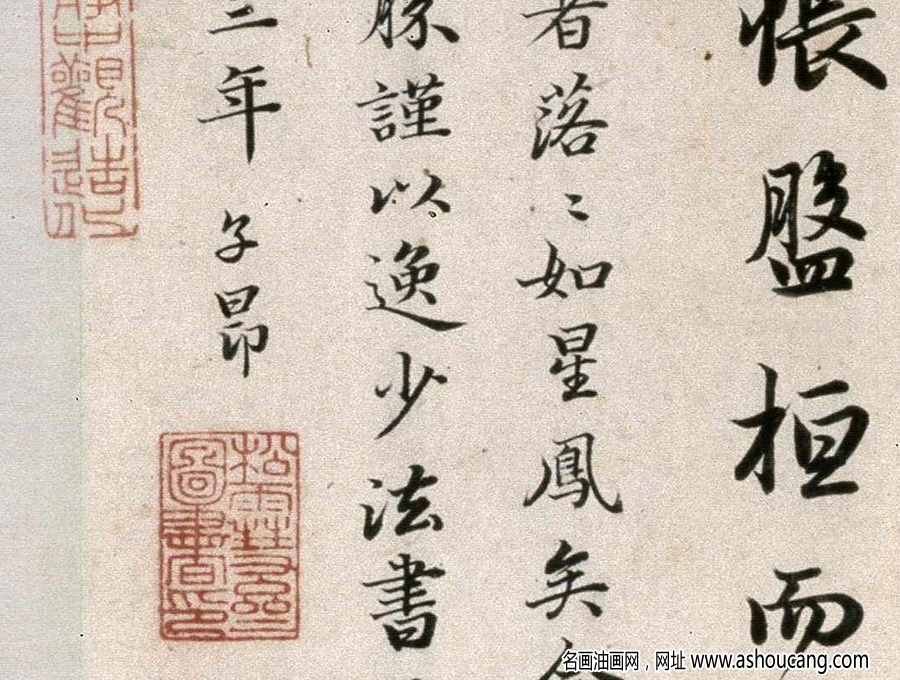 悵盤桓而
者落〻如星鳳矣
謹以逸少法書
二年子昂
松雪齋圖書印
名画油画网，网址 www.ashoucang.com